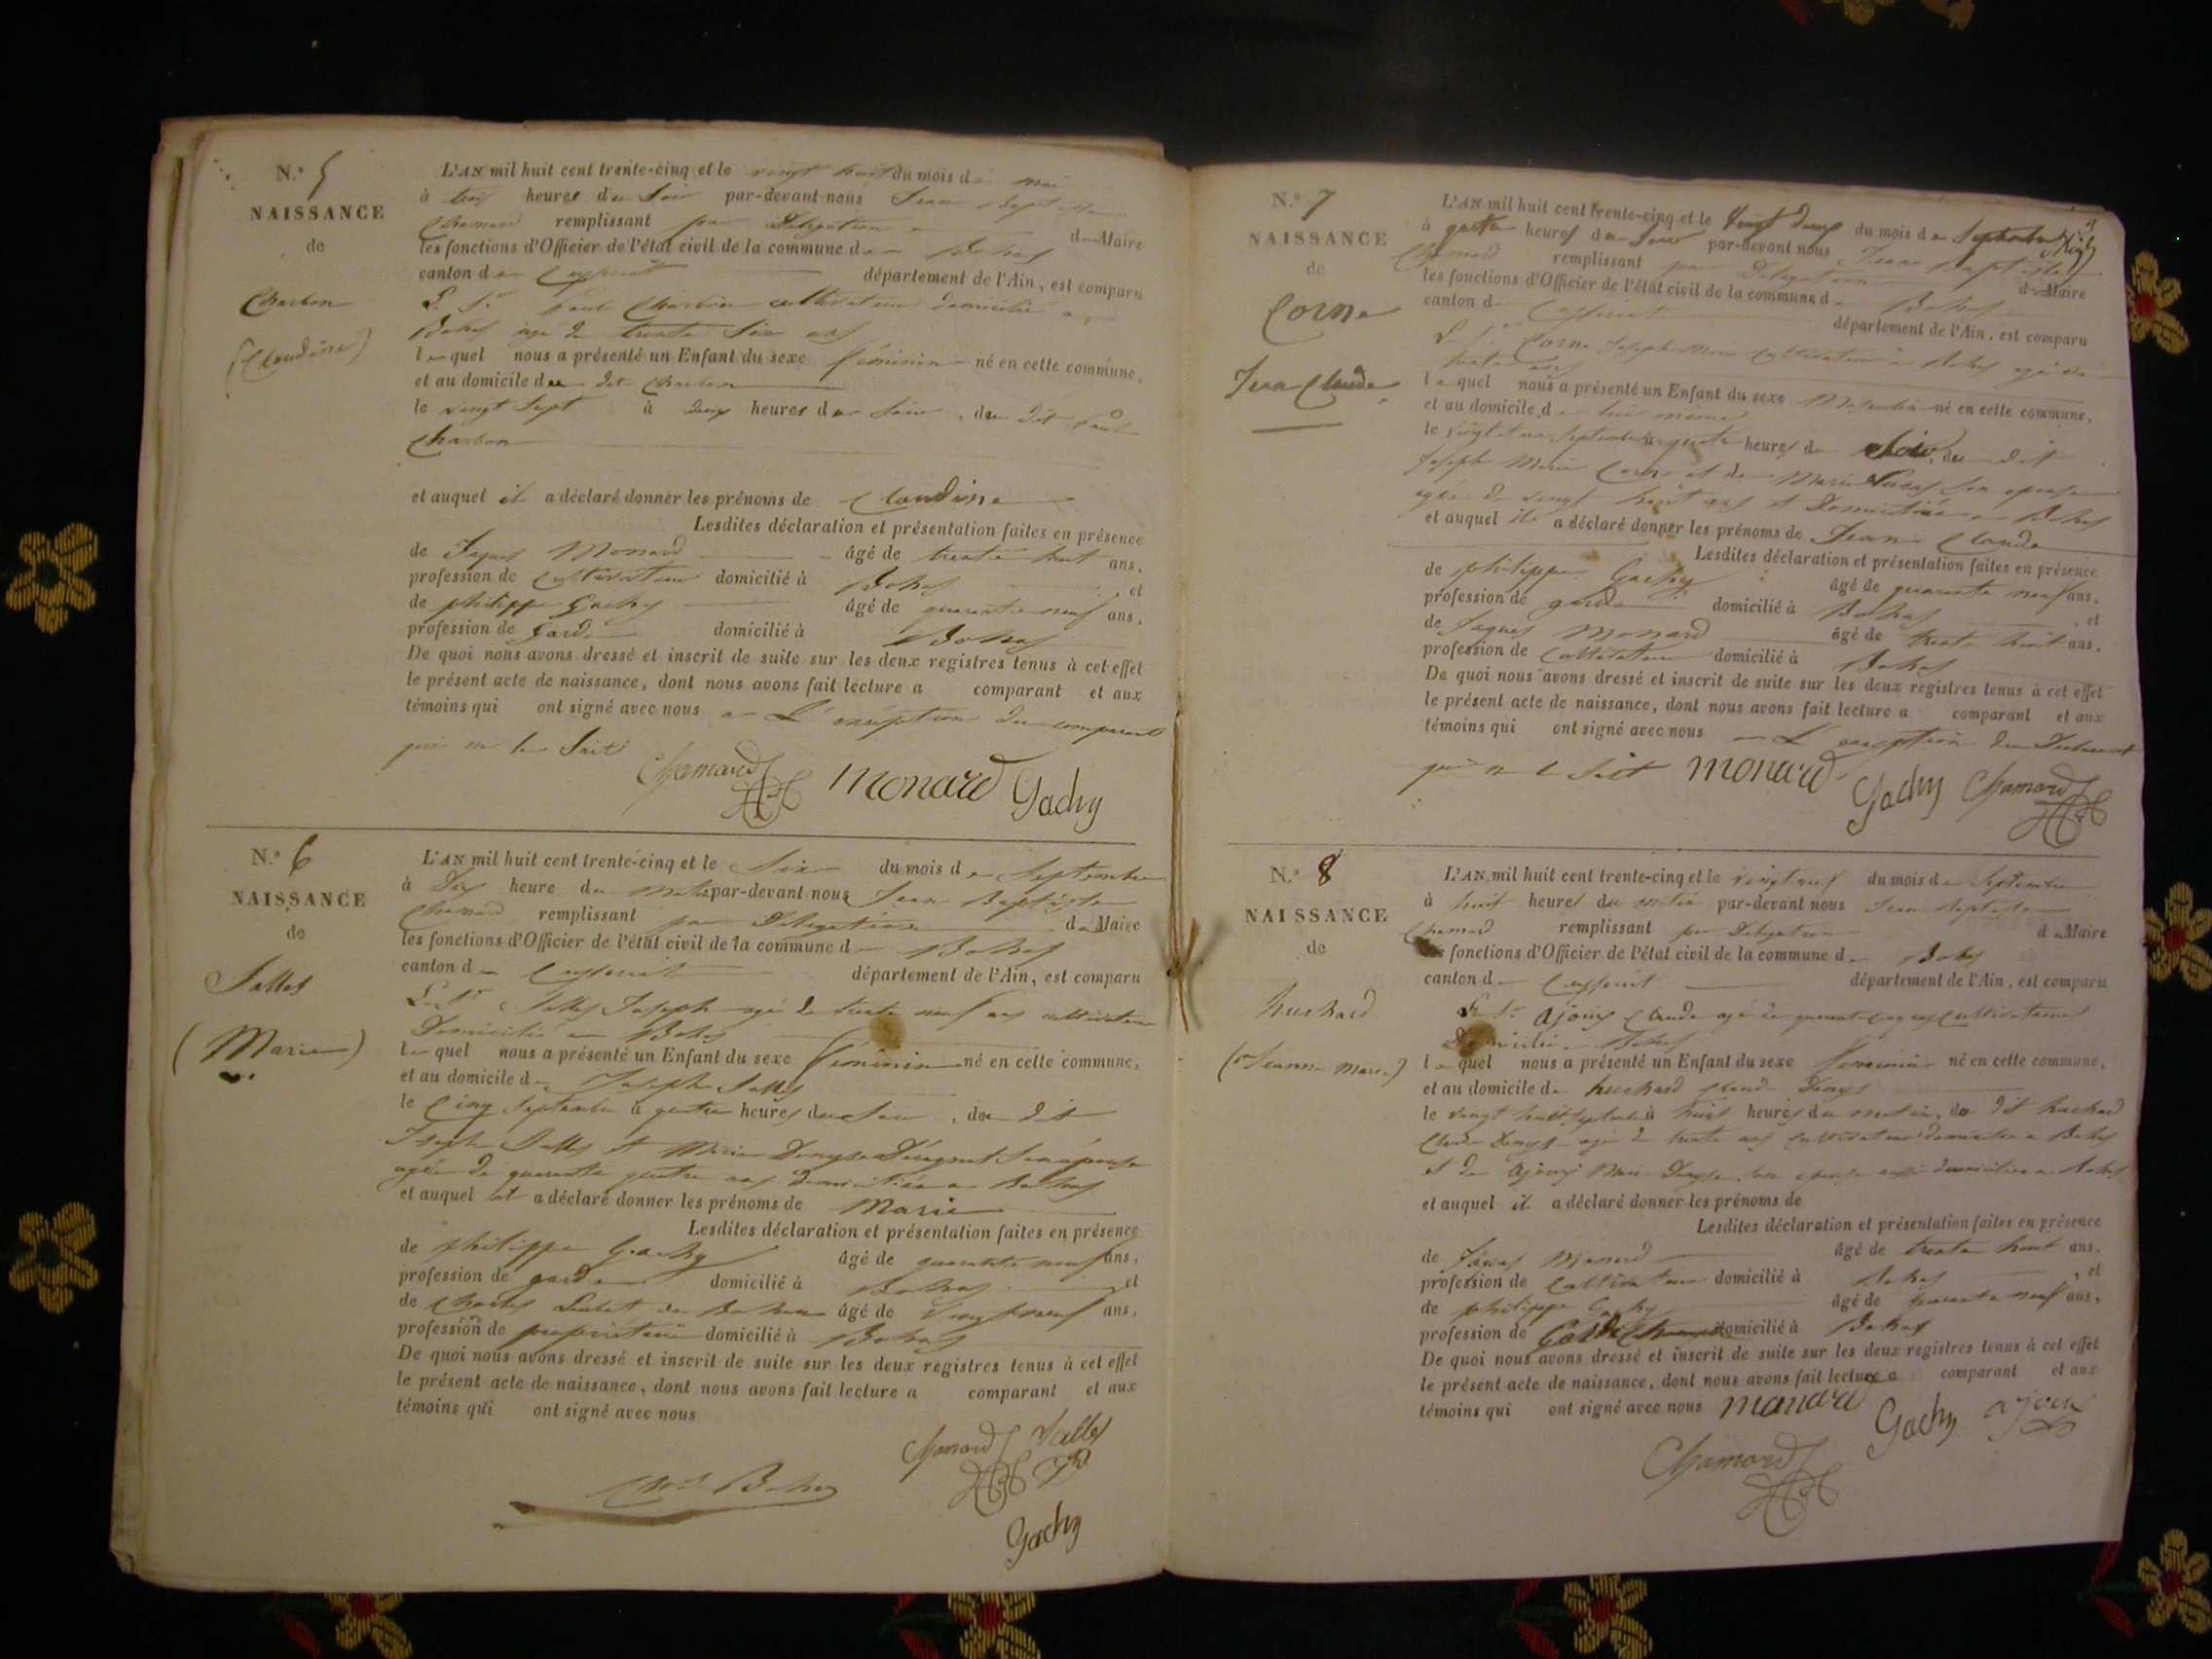 N.° 5
NAISSANCE
de
Charbon
(Claudine)
L'AN mil huit cent trente-cinq et le vingt huit du mois de mai
à trois heures du soir par-devant nous Jean Baptiste
Chamard remplissant par Délégation du Maire
les fonctions d'Officier de l'état civil de la commune de Bohas
canton de Ceyzeriat département de l'Ain, est comparu
L. Sr. Paul Charbon cultivateur domicilié a
Bohas agé de trente six ans
lequel nous a présenté un Enfant du sexe féminin né en cette commune,
et au domicile du dit Charbon
le vingt sept à deux heures du soir, du dit Paul
Charbon
et auquel il a déclaré donner les prénoms de Claudine
Lesdites déclaration et présentation faites en présence
de Jaques Monard âgé de trente huit ans,
profession de Cultivateur domicilié à Bohas, et
de philippe Gachy âgé de quarante neuf ans,
profession de Garde domicilié à Bohas
De quoi nous avons dressé et inscrit de suite sur les deux registres tenus à cet effet
le présent acte de naissance, dont nous avons fait lecture a comparant et aux
témoins qui ont signé avec nous a L'exception du comparant
qui ne le sait
Chamard Monard Gachy
N.° 6
NAISSANCE
de
Salles
(Marie)
L'AN mil huit cent trente-cinq et le Six du mois de Septembre
à Dix heure du matin par-devant nous Jean Baptiste
Chamard remplissant par Délégation du Maire
les fonctions d'Officier de l'état civil de la commune de Bohas
canton de Ceyzeriat département de l'Ain, est comparu
Le Sr Salles Joseph agé de trente neuf ans cultivateur
Domicilié a Bohas
lequel nous a présenté un Enfant du sexe féminin né en cette commune,
et au domicile de Joseph Salles
le Cinq Septembre à quatre heures du soir, du dit
Joseph Salles et Marie Denyse son épouse
agée de quarante quatre ans domiciliée a Bohas
et auquel il a déclaré donner les prénoms de Marie
Lesdites déclaration et présentation faites en présence
de philippe Gachy âgé de quarante neuf ans,
profession de garde domicilié à Bohas et
de Charles de Bohas âgé de vingt neuf ans,
profession de propriétaire domicilié à Bohas
De quoi nous avons dressé et inscrit de suite sur les deux registres tenus à cet effet
le présent acte de naissance, dont nous avons fait lecture a comparant et aux
témoins qui ont signé avec nous
Chamard Salles
Bohas
Gachy
N.° 7
NAISSANCE
de
Corne
Jean Claude
L'AN mil huit cent trente-cinq et le vingt deux du mois de Septembre
à quatre heures du soir par-devant nous Jean Baptiste
Chamard remplissant par Délégation du Maire
les fonctions d'Officier de l'état civil de la commune de Bohas
canton de Ceyzeriat département de l'Ain, est comparu
L. Sr. Corne Joseph Marie Cultivateur a Bohas agé de
trente ans
lequel nous a présenté un Enfant du sexe Masculin né en cette commune,
et au domicile de lui même
le vingt et un Septembre à quatre heures du Soir, du dit
Joseph Marie Corne et de Marie son epouse
agée de vingt huit ans et Domiciliée a Bohas
et auquel il a déclaré donner les prénoms de Jean Claude
Lesdites déclaration et présentation faites en présence
de philippe Gachy âgé de quarante neuf ans,
profession de garde domicilié à Bohas, et
de Jaques Monard âgé de trente huit ans,
profession de Cultivateur domicilié à Bohas
De quoi nous avons dressé et inscrit de suite sur les deux registres tenus à cet effet
le présent acte de naissance, dont nous avons fait lecture a comparant et aux
témoins qui ont signé avec nous a L'exception du Déclarant
qui ne le sait Monard Gachy Chamard
N.° 8
NAISSANCE
de
huchard
(Jeanne Marie)
L'AN mil huit cent trente-cinq et le vingt neuf du mois de Septembre
à huit heures du matin par-devant nous Jean Baptiste
Chamard remplissant par Délégation du Maire
les fonctions d'Officier de l'état civil de la commune de Bohas
canton de Ceyzeriat département de l'Ain, est comparu
Le Sr. ajoux Claude agé de quarante cinq ans Cultivateur
Domicilié a Bohas
lequel nous a présenté un Enfant du sexe féminin né en cette commune,
et au domicile de huchard Claude Denys
le vingt huit Septembre à huit heures du matin, du dit huchard
Claude Denys agé de trente ans Cultivateur domicilié a Bohas
et de ajoux Marie Denyse son epouse aussi domiciliée a Bohas
et auquel il a déclaré donner les prénoms de
Lesdites déclaration et présentation faites en présence
de Jaques Monard âgé de trente huit ans,
profession de Cultivateur domicilié à Bohas, et
de philippe Gachy âgé de quarante neuf ans,
profession de Garde domicilié à Bohas
De quoi nous avons dressé et inscrit de suite sur les deux registres tenus à cet effet
le présent acte de naissance, dont nous avons fait lecture a comparant et aux
témoins qui ont signé avec nous Monard Gachy ajoux
Chamard